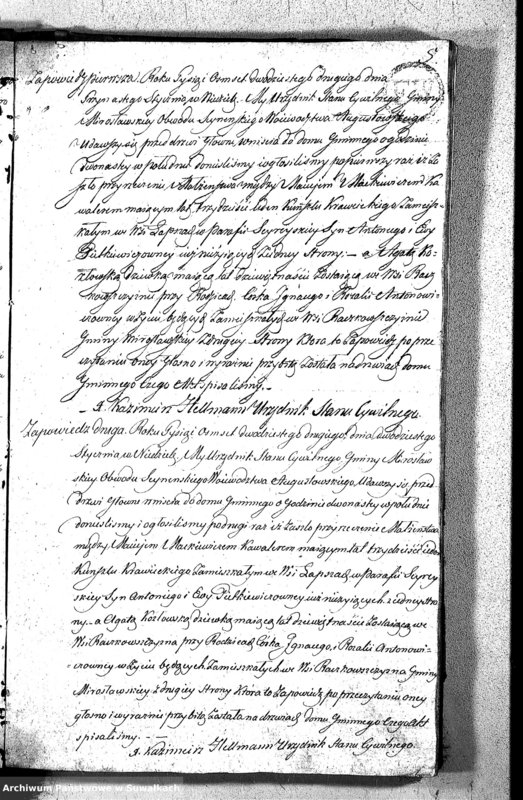 5
Zapowiedź pierwsza. Roku Tysiąc Osmset dwudziestego drugiego dnia
Stycznia w Niedzielę. My Urzędnik Stanu Cywilnego Gminy
Mirosławskiey Obwodu Seynenskiego Woiewodztwa Augustowskiego
Udawszy się przed drzwi główne wniścia do domu Gminnego o godzinie
dwonastey w południe donieśliśmy i ogłosiliśmy popierwszy raz iż za-
szło przyrzeczenie Małżenstwa między Maciejem Mackiewiczem Ka
walerem maiącym lat trzydzieści ieden Kunsztu Krawieckiego Zamiesz-
kałym w Wsi Zapszach w Parafii Seyryskiey Syn Antoniego i Ewy
Piłkiewiczowny iuż nieżyiących Zedney Strony. – a Agatą Ko-
złowską dziewką maiącą lat dziewiętnaście Zostaiącą we Wsi Racz
kowszczyznie przy Rodzicach Corka Ignacego i Rozalii Antonowi-
czowney w Życiu będących Zamieszkałych w Wsi Raczkowszczyznie
Gminy Mirosławskiey Zdrugiey Strony Ktora to Zapowiedź po prze
czytaniu oney Głośno i wyraźnie przybitą Została na drzwiach domu
Gminnego Czego Akt spisaliśmy. –
– X. Kazimierz Hellmann Urzędnik Stanu Cywilnego.
Zapowiedz druga. Roku Tysiąc Osmset dwudziestego drugiego, dnia dwudziestego
Stycznia w Niedzielę. My Urzędnik Stanu Cywilnego Gminy Mirosław
skiey Obwodu Seynenskiego Woiewodztwa Augustowskiego Udawszy się przed
drzwi Główne wniścia do domu Gminnego o Godzinie dwonastey w południe
donieśliśmy i ogłosiliśmy podrugi raz iż Zaszło przyrzeczenie Małżenstwa
między Maciejem Mackiewiczem Kawalerem maiącym lat trzydzieści ieden
Kunsztu Krawieckiego Zamieszkałym w Wsi Zapszach w Parafii Seyry
skiey Syn Antoniego i Ewy Piłkiewiczowney iuż nieżyiących. zedney Stro
ny. – a Agatą Kozłowską dziewką maiącą lat dziewiętnaście Zostaiącą we
Wsi Raczkowszczyzna przy Rodzicach Corka Ignacego, i Rozalii Antonowi-
czowney w Życiu będących Zamieszkałych we Wsi Raczkowszczyzna Gminy
Mirosławskiey z drugiey Strony Ktora to Zapowiedź po przeczytaniu oney
głośno i wyraźnie przybitą Została na drzwiach domu Gminnego Czego Akt
spisaliśmy. –
X. Kazimierz Hellmann Urzędnik Stanu Cywilnego
Archiwum Państwowe w Suwałkach